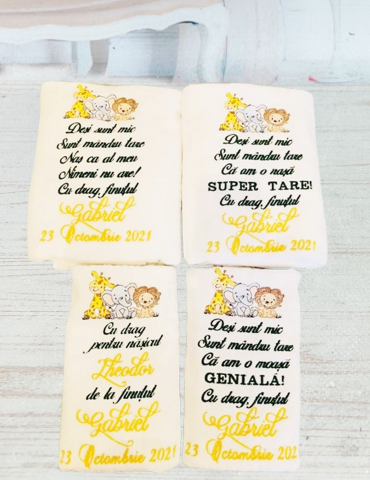 Deși sunt mic
Sunt mândru tare
Naș ca al meu
Nimeni nu are!
Cu drag, finuțul
Gabriel
23 Octombrie 2021
Deși sunt mic
Sunt mândru tare
Că am o nașă
SUPER TARE!
Cu drag, finuțul
Gabriel
23 Octombrie 2021
Cu drag
pentru nașicul
Theodor
de la finuțul
Gabriel
23 Octombrie 2021
Deși sunt mic
Sunt mândru tare
Că am o moașă
GENIALĂ!
Cu drag, finuțul
Gabriel
23 Octombrie 202